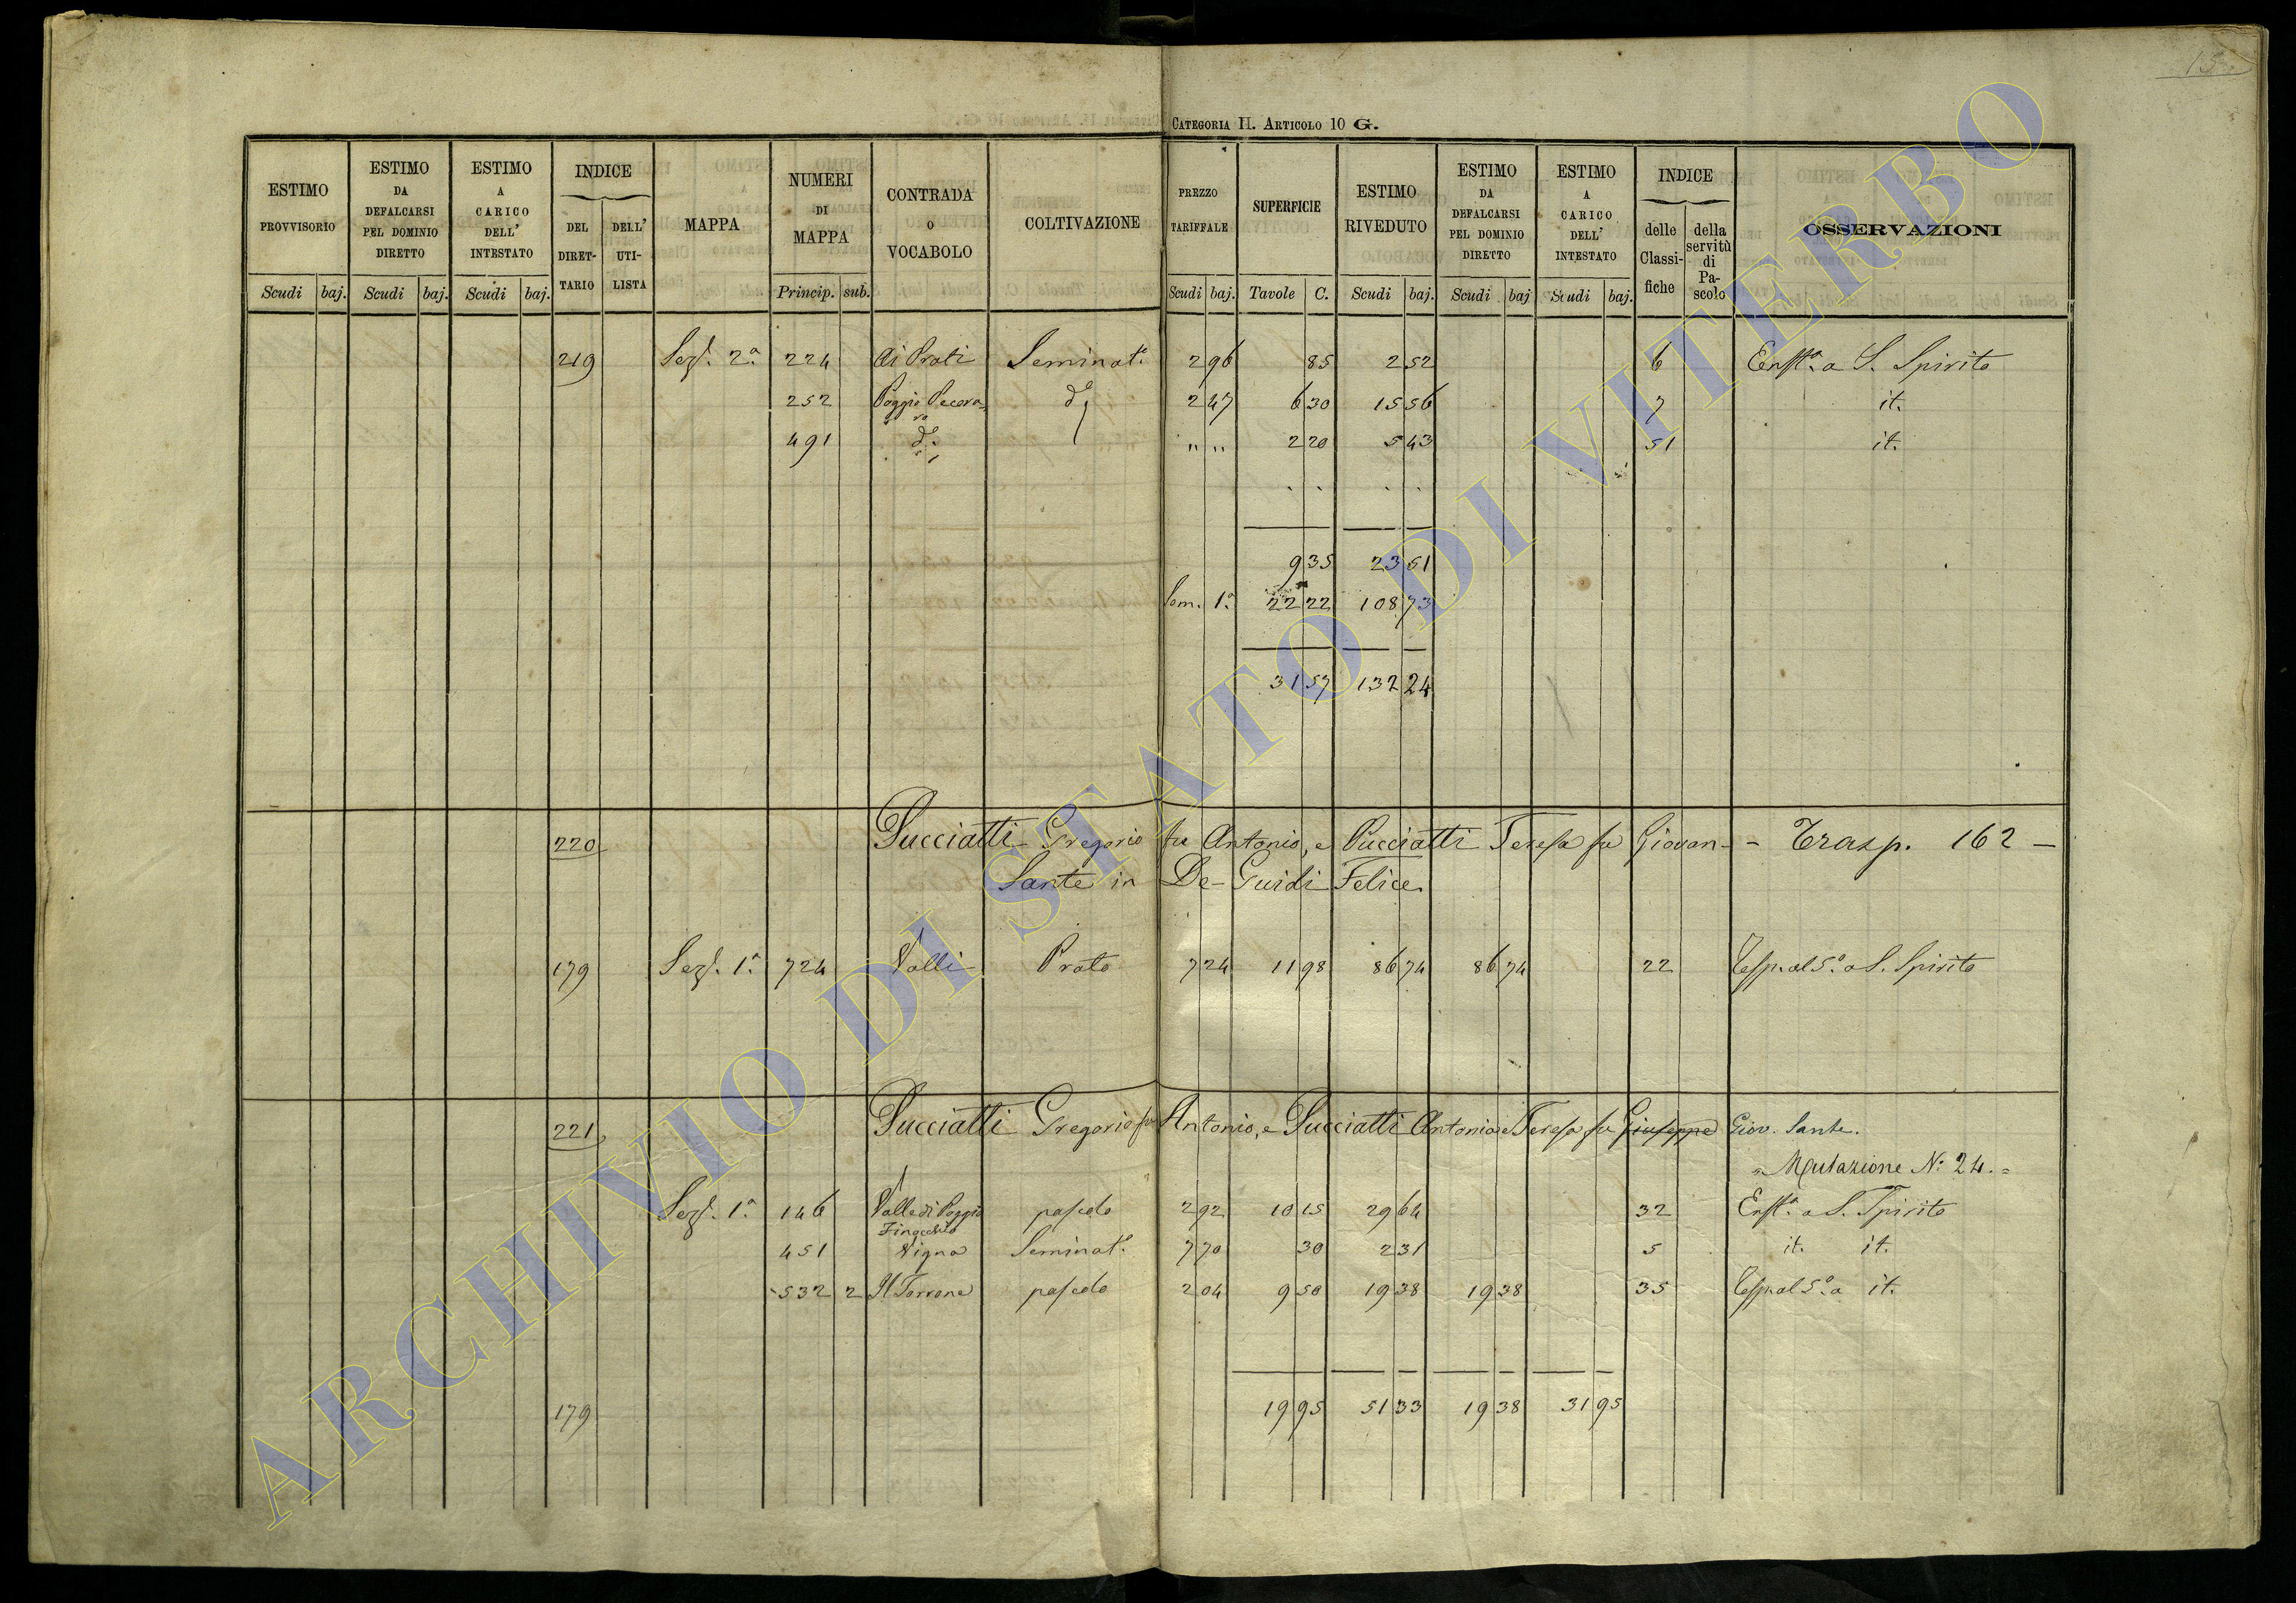 15
CATEGORIA II. ARTICOLO 10 G.
ESTIMO PROVVISORIO Scudi baj.
ESTIMO DA DEFALCARSI PEL DOMINIO DIRETTO Scudi baj.
ESTIMO A CARICO DELL' INTESTATO Scudi baj.
INDICE DEL DIRETTARIO DELL' UTILISTA
MAPPA
NUMERI DI MAPPA Princip. sub.
CONTRADA O VOCABOLO
COLTIVAZIONE
PREZZO TARIFFALE Scudi baj.
SUPERFICIE Tavole C.
ESTIMO RIVEDUTO Scudi baj.
ESTIMO DA DEFALCARSI PEL DOMINIO DIRETTO Scudi baj
ESTIMO A CARICO DELL' INTESTATO Scudi baj.
INDICE delle Classifiche della servitù di Pascolo
OSSERVAZIONI
219 Sez. 2.a 224 Ai Prati Seminat.o 2 96 85 2 52 6 Enft.a a S. Spirito
252 Poggio Pecoraro d.o 2 47 6 30 15 56 7 it.
491 d.o " " 2 20 5 43 51 it.
9 35 23 51
Som. 1.a 22 22 108 73
31 57 132 24
220 Pucciatti Gregorio fu Antonio, e Pucciatti Teresa fu Giovan- - Trasp. 162 -
Sante in De-Guidi Felice.
179 Sez. 1.a 724 Valli Prato 7 24 11 98 86 74 86 74 22 Resp. al 5.o a S. Spirito
221 Pucciatti Gregorio fu Antonio, e Pucciatti Antonia e Teresa fu Giuseppe Giov. Sante.
= Mutazione N.o 24. =
Sez. 1.a 146 Valle di Poggio Finocchio pascolo 2 92 10 15 29 64 32 Enft.a a S. Spirito
451 Vigna Seminat.o 7 70 30 2 31 5 it. it.
532 2 Il Torrone pascolo 2 04 9 50 19 38 19 38 35 Resp. al 5.o a it.
179 19 95 51 33 19 38 31 95
ARCHIVIO DI STATO DI VITERBO